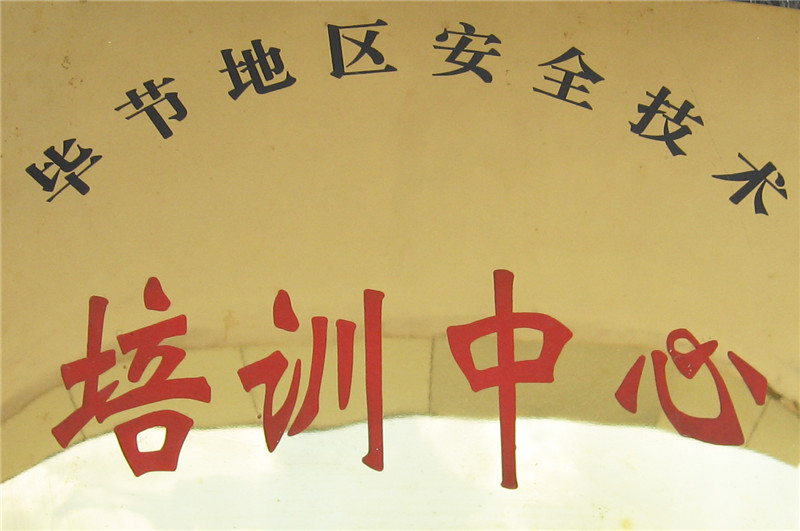 毕节地区安全技术
培训中心